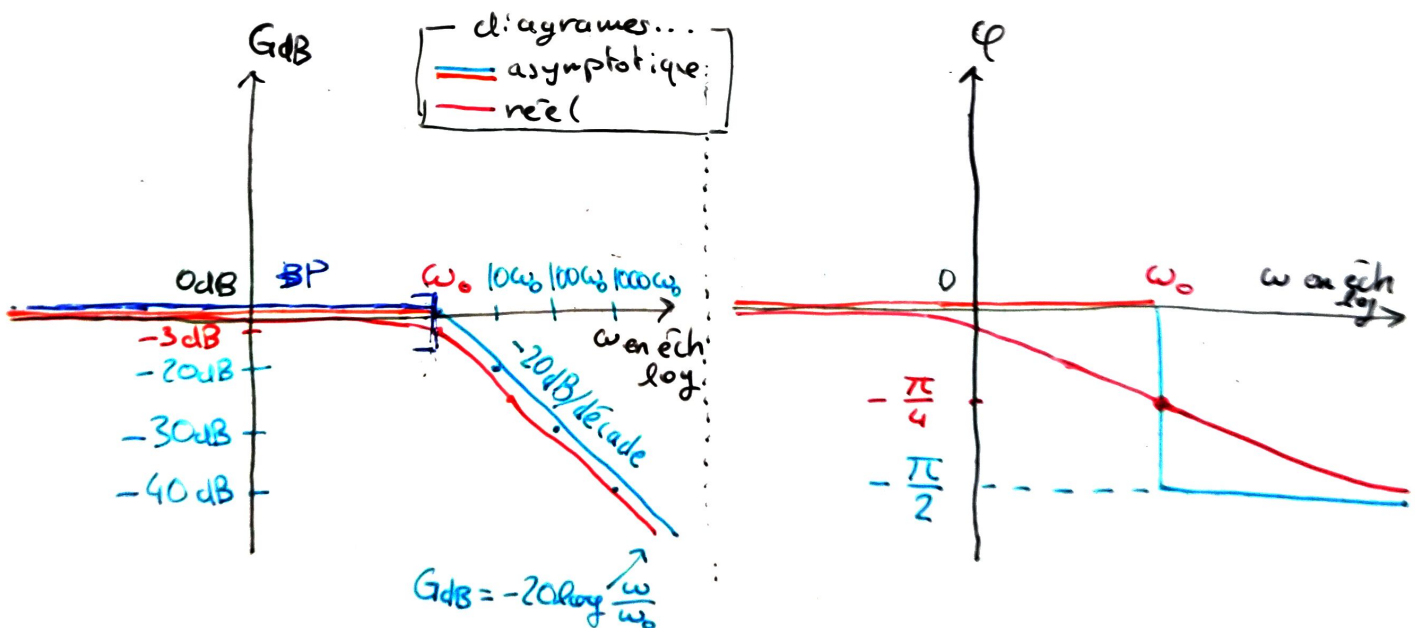 GdB
diagrames...
asymptotique
réel
0dB
BP
ω₀
10ω₀
100ω₀
1000ω₀
-3dB
-20dB
-30dB
-40dB
ω en éch
log
-20dB/décade
GdB = -20log ω/ω₀
φ
0
ω₀
ω en éch
log
-π/4
-π/2